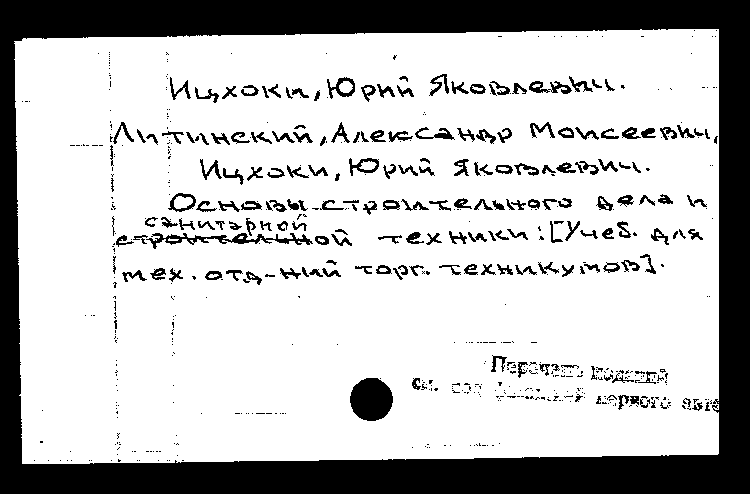 Ицхоки, Юрий Яковлевич.
Литинский, Александр Моисеевич,
Ицхоки, Юрий Яковлевич.
Основы строительного дела и
санитарной
строительной техники: [Учеб. для
тех. отд-ний торг. техникумов].
Перечень изданий
см. под фамилией первого авто